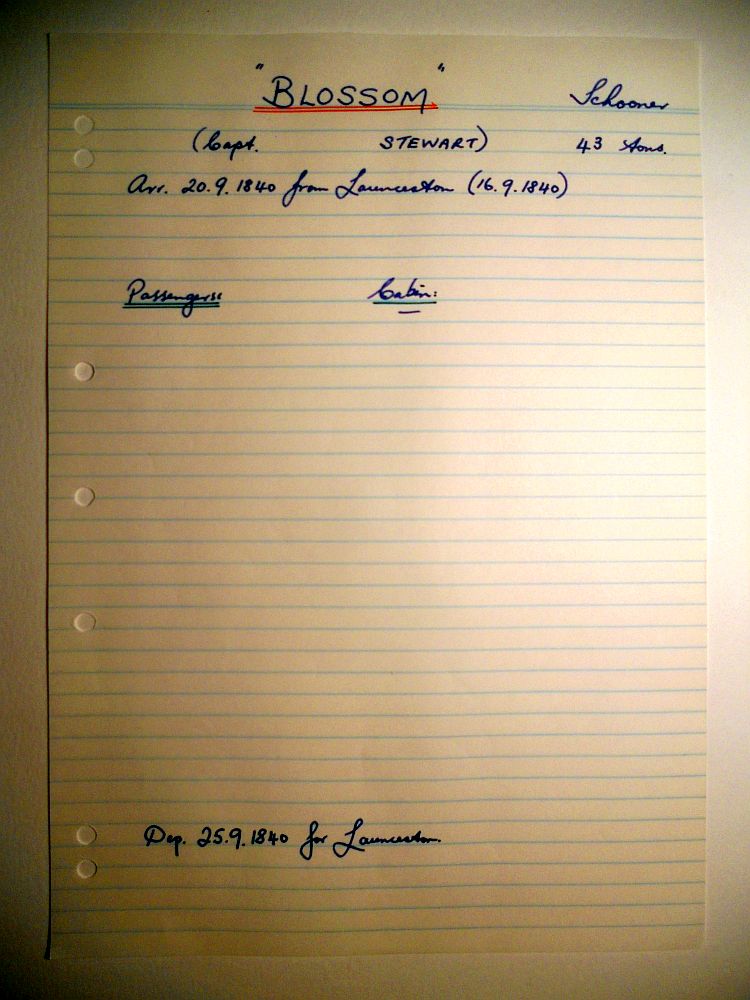 "BLOSSOM" Schooner
(Capt. STEWART) 43 tons.
Arr. 20.9.1840 from Launceston (16.9.1840)
Passengers: Cabin:
Dep. 25.9.1840 for Launceston.